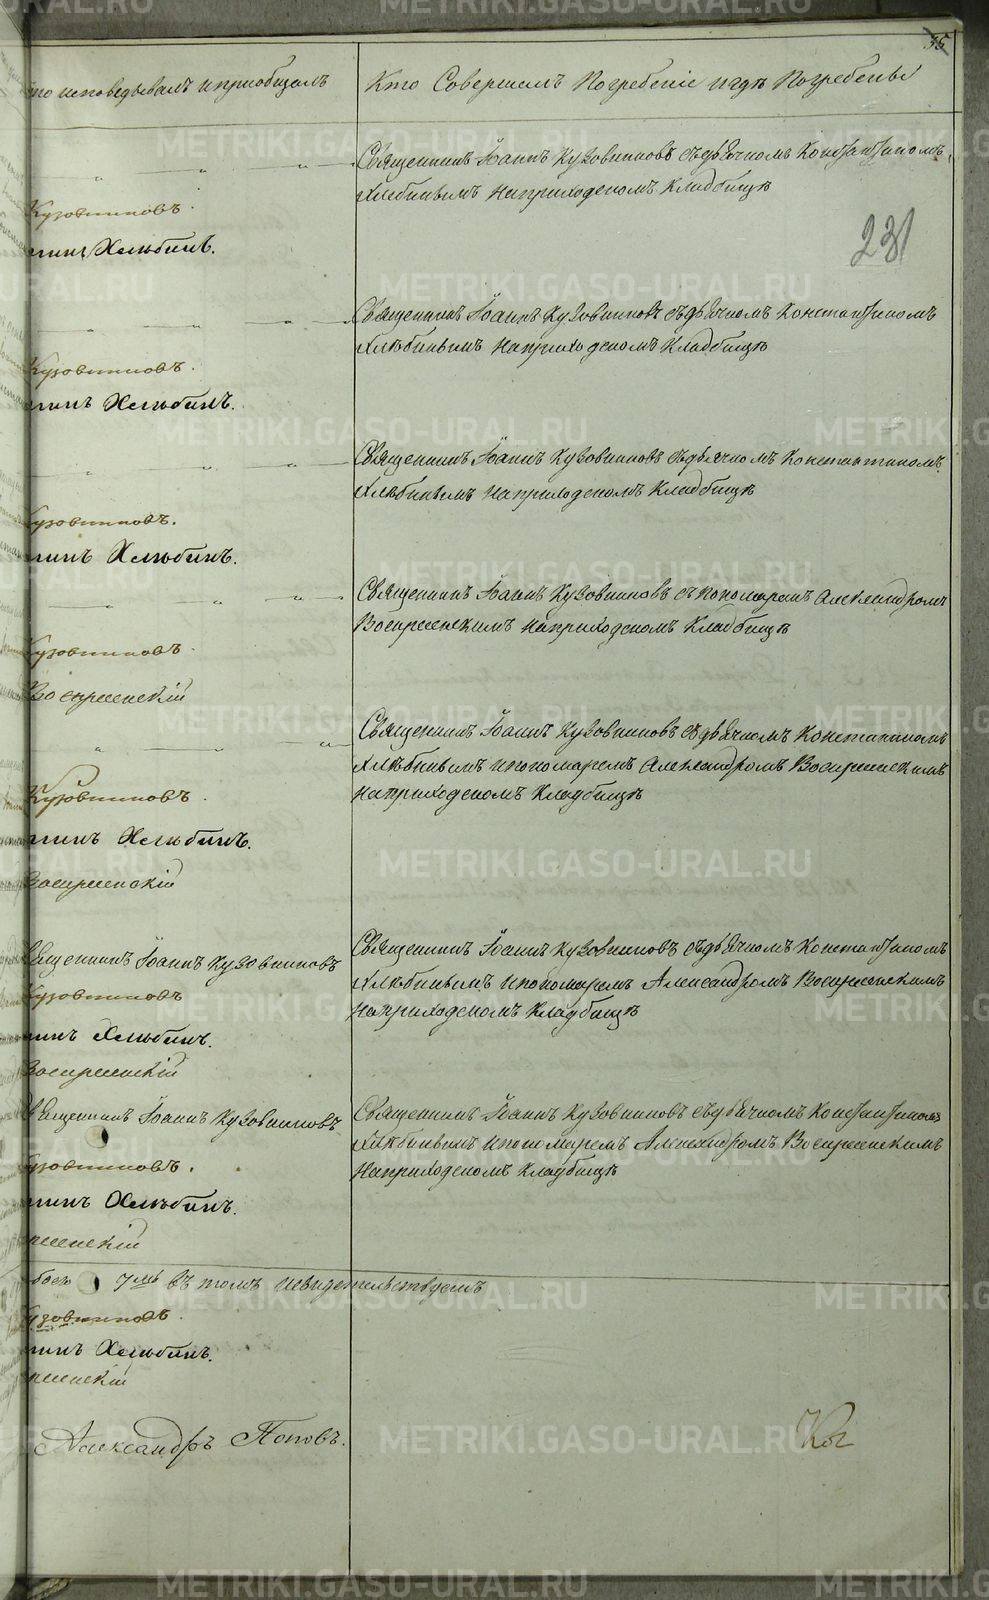 35
Кто исповѣдывалъ и пріобщалъ
Кто Совершалъ Погребеніе и гдѣ Погребены
Священникъ Іоаннъ Кузовниковъ съ дьячкомъ Константиномъ
Хлѣбинымъ на приходскомъ Кладбищѣ
Кузовниковъ.
Хлѣбинъ.
231
Священникъ Іоаннъ Кузовниковъ съ дьячкомъ Константиномъ
Хлѣбинымъ на приходскомъ Кладбищѣ
Кузовниковъ.
Хлѣбинъ.
Священникъ Іоаннъ Кузовниковъ съ дьячкомъ Константиномъ
Хлѣбинымъ на приходскомъ Кладбищѣ
Кузовниковъ.
Хлѣбинъ.
Священникъ Іоаннъ Кузовниковъ съ пономаремъ Александромъ
Воскресенскимъ на приходскомъ Кладбищѣ
Кузовниковъ.
Воскресенскій
Священникъ Іоаннъ Кузовниковъ съ дьячкомъ Константиномъ
Хлѣбинымъ и пономаремъ Александромъ Воскресенскимъ
на приходскомъ Кладбищѣ
Кузовниковъ.
Хлѣбинъ.
Воскресенскій
Священникъ Іоаннъ Кузовниковъ
Священникъ Іоаннъ Кузовниковъ съ дьячкомъ Константиномъ
Хлѣбинымъ и пономаремъ Александромъ Воскресенскимъ
на приходскомъ Кладбищѣ
Кузовниковъ
Хлѣбинъ.
Воскресенскій
Священникъ Іоаннъ Кузовниковъ
Священникъ Іоаннъ Кузовниковъ съ дьячкомъ Константиномъ
Хлѣбинымъ и пономаремъ Александромъ Воскресенскимъ
на приходскомъ Кладбищѣ
Кузовниковъ.
Хлѣбинъ.
7мь въ томъ и свидетельствуемъ
Кузовниковъ.
Хлѣбинъ.
Александръ Поповъ.
METRIKI.GASO-URAL.RU